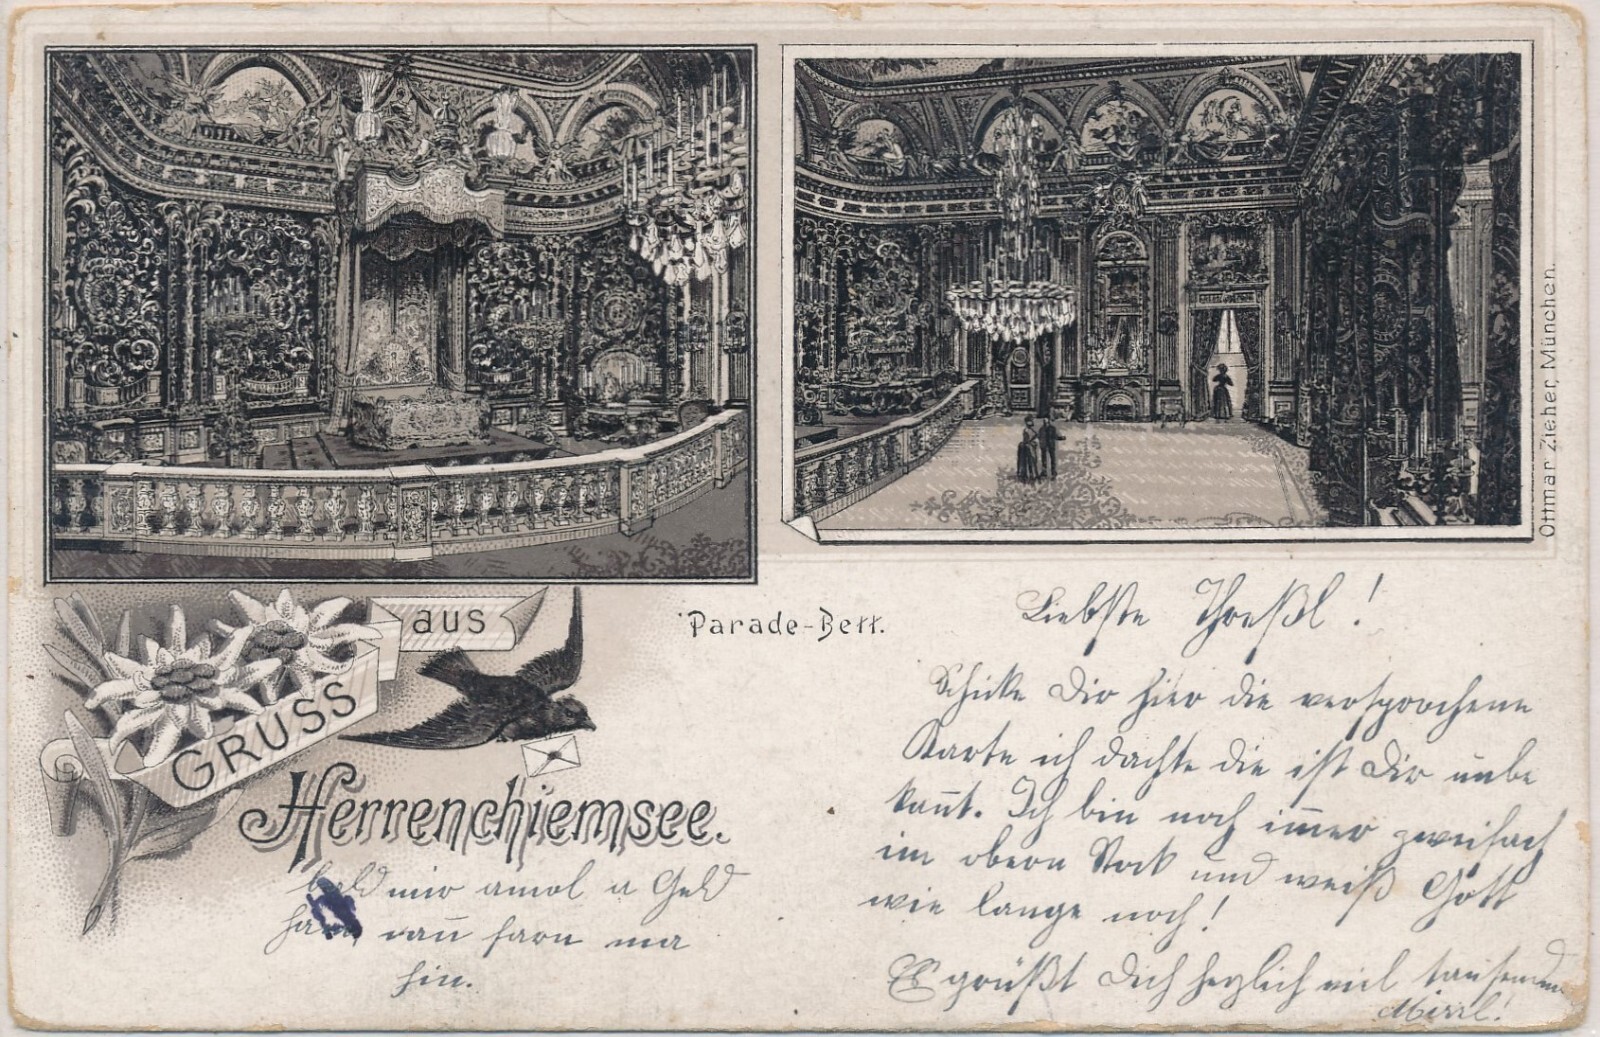 Ottmar Zieher, München.
GRUSS
aus
Herrenchiemsee.
Parade-Bett.
Liebste !
Schicke Dir hier die versprochene
Karte ich dachte die ist Dir unbe
kannt. Ich bin noch immer zweifach
im obern Stock und weiß Gott
wie lange noch!
Es grüßt Dich herzlich viel tausendm
Mirzl!
bald mir amol a Geld
ham, dann farn ma
hin.